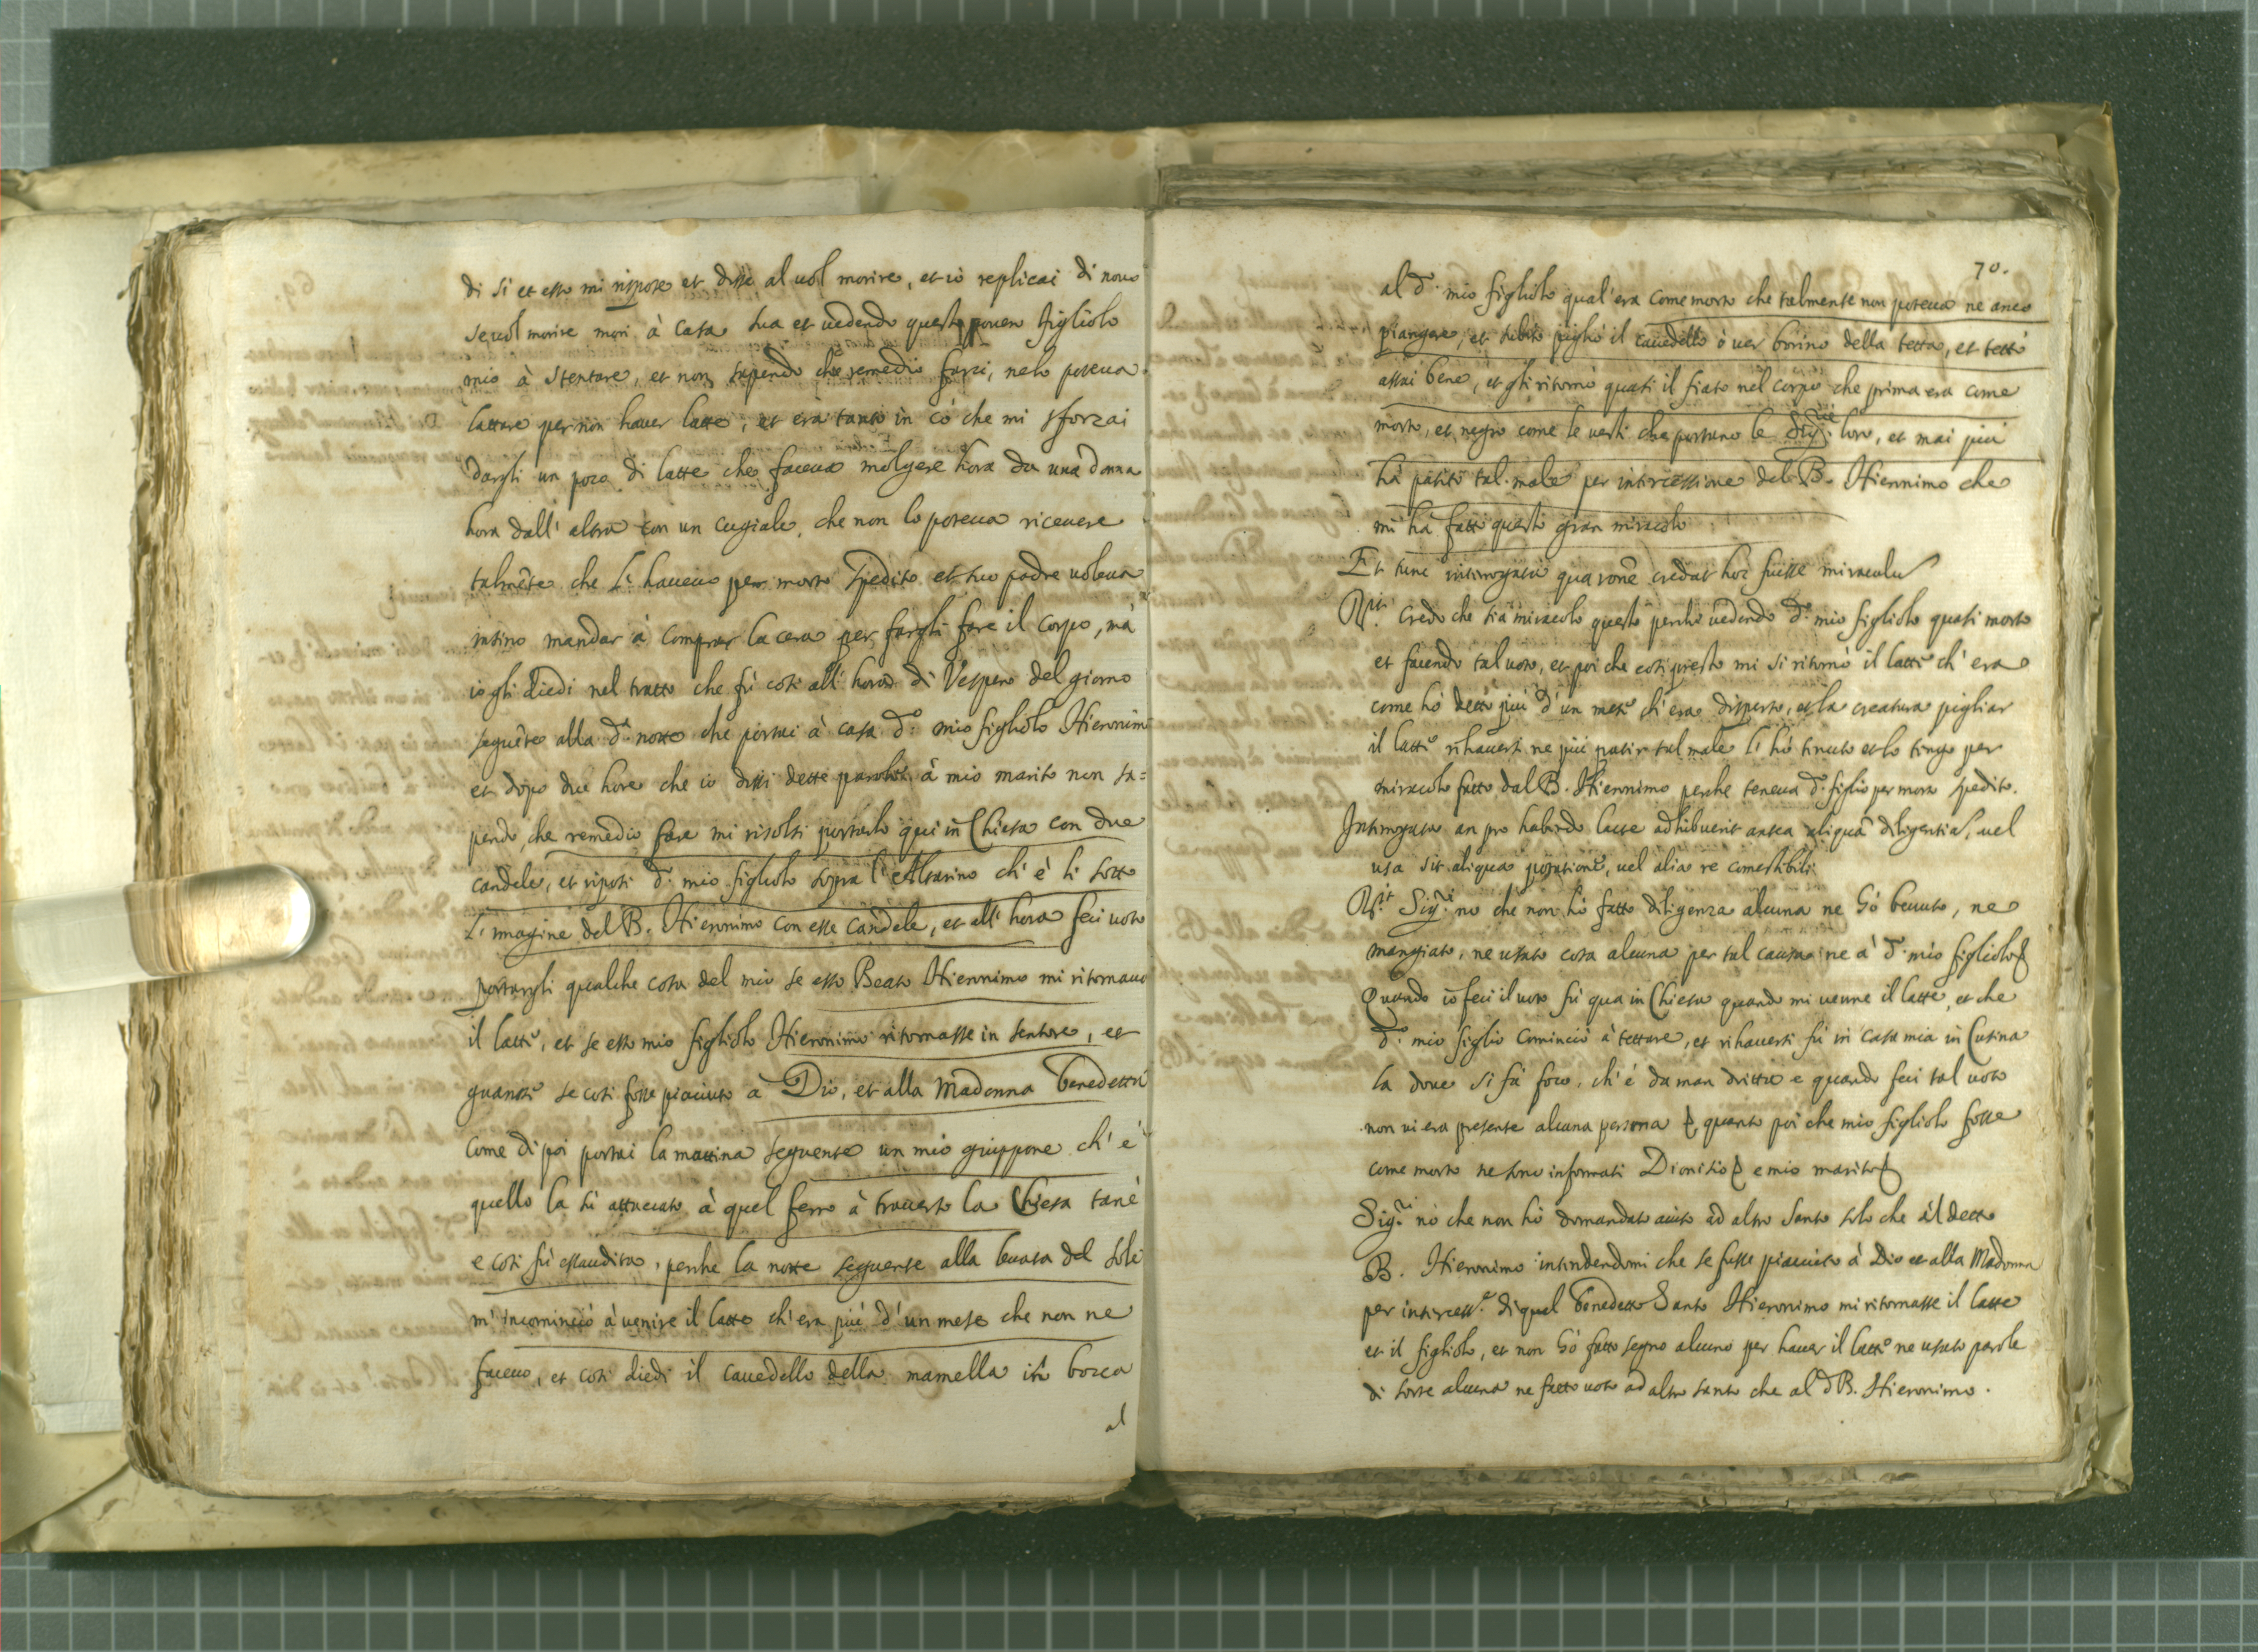 di si et esso mi rispose et disse al uol morire, et io replicai di nouo
se uol morire mori à casa sua et uedendo questo pouero figliolo
mio à stentare, et non sapendo che remedio farci, nelo poteua
lattare per non hauer latte, et era tanto in cò che mi sforzai
dargli un poco di latte che faceua molgere hora da una donna
hora dall' altra con un cugiale, che non lo poteua riceuere
talmēte che l' haueuo per morto spedito et suo padre uoleua
insino mandar à comprar la cera per fargli fare il corpo, mà
io gli diedi nel tratto che fù cosi all' hora di Vespero del giorno
seguēte alla d.ª notte che portai à casa d.º mio figliolo Hieronimo
et dopo due hore che io dissi dette parole à mio marito non sa=
pendo, che remedio fare mi risolsi portarlo qui in Chiesa con due
candele, et riposi d.º mio figliolo sopra l'Altarino ch' è li sotto
L' imagine del B. Hieronimo con esse candele, et all' hora feci uoto
portargli qualche cosa del mio se esso Beato Hieronimo mi ritornaua
il latte, et se esso mio figliolo Hieronimo ritornasse in sentore, et
guarisse se cosi fosse piaciuto à Dio, et alla Madonna benedetta
come di poi portai la mattina seguente un mio giuppone ch' è
quello la sù attaccato à quel ferro à trauerso la Chiesa tanè
e cosi fù essaudita, perche la notte seguente alla leuata del sole
m' incominciò à uenire il latte ch' era più d' un mese che non ne
faceuo, et cosi diedi il cauedello della mamella in bocca
al
70.
al d.º mio figliolo qual' era come morto che talmente non poteua ne anco
piangere, et subito pigliò il cauedello ò uer borino della tetta, et tettò
assai bene, et gli ritornò quasi il fiato nel corpo che prima era come
morto, et negro come le uesti che portano le Sig.rie loro, et mai più
hà patito tal male per intercessione del B. Hieronimo che
mi hà fatto questo gran miracolo
Et tunc interrogata qua ronē credat hoc fuisse miraculū
R.it credo che sia miracolo questo perche uedendo d.º mio figliolo quasi morto
et facendo tal uoto, et poi che cosi presto mi si ritornò il latte ch' era
come hò detto più d' un mese ch' era disperso, et la creatura pigliar
il latte rihauersi ne più patir tal male l' hò tenuto et lo tengo per
miracolo fatto dal B. Hieronimo perche teneua d.º figlio per morto spedito.
Interrogata an pro habendo lacte adhibuerit antea aliquā diligentiā, uel
usa sit aliqua potatione, uel alia re comestibili
R.it Sig.ri no che non hò fatto diligenza alcuna ne hò beuuto, ne
mangiato, ne usato cosa alcuna per tal causa ne à d.º mio figliolo
Quando io feci il uoto fù qua in Chiesa quando mi uenne il latte, et che
d.º mio figlio cominciò à tettare, et rihauersi fù in casa mia in Cusina
la doue si fà foco, ch' è da man dritta e quando feci tal uoto
non ui era presente alcuna persona, quanto poi che mio figliolo fosse
come morto ne sono informati Dionisio e mio marito
Sig.ri nò che non hò domandato aiuto ad altro Santo solo che al detto
B. Hieronimo intendendomi che se fusse piaciuto à Dio et alla Madonna
per intercess.e di quel benedetto Santo Hieronimo mi ritornasse il latte
et il figliolo, et non hò fatto segno alcuno per hauer il latte ne usato parole
di sorte alcuna ne fatto uoto ad altro santo che al d B. Hieronimo.